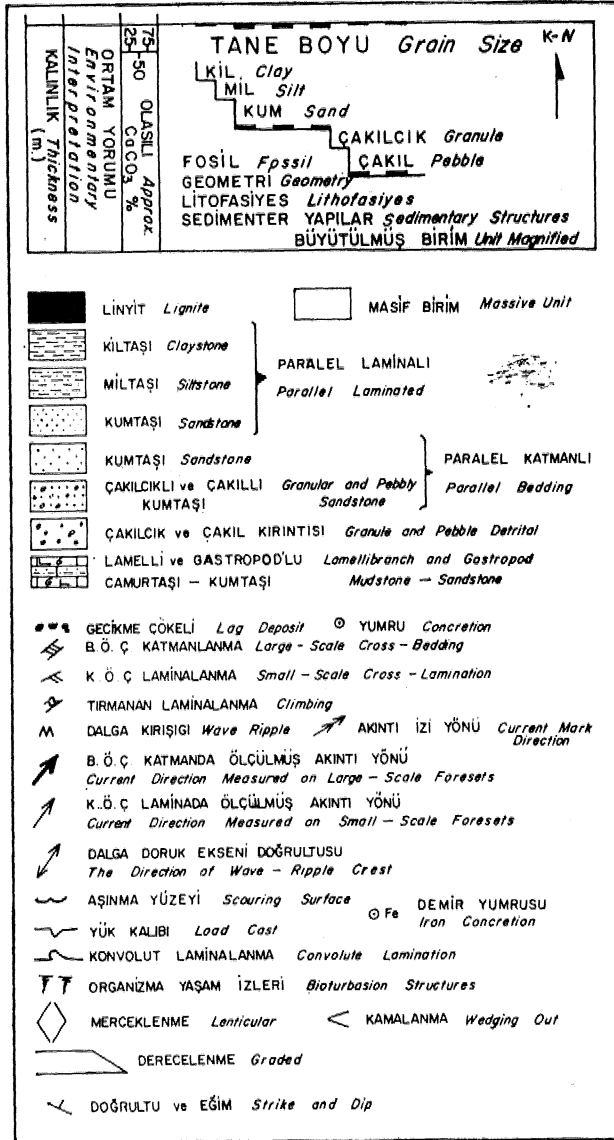 KALINLIK Thickness (m.)
ORTAM YORUMU
Environmentary
Interpretation
25 50 75
OLASILI Approx.
CaCO₃ %
TANE BOYU Grain Size
K-N
KİL Clay
MİL Silt
KUM Sand
ÇAKILCIK Granule
FOSİL Fossil
ÇAKIL Pebble
GEOMETRİ Geometry
LİTOFASİYES Lithofasiyes
SEDİMENTER YAPILAR Sedimentary Structures
BÜYÜTÜLMÜŞ BİRİM Unit Magnified
LİNYİT Lignite
MASİF BİRİM Massive Unit
KİLTAŞI Claystone
MİLTAŞI Siltstone
PARALEL LAMİNALI
Parallel Laminated
KUMTAŞI Sandstone
KUMTAŞI Sandstone
PARALEL KATMANLI
Parallel Bedding
ÇAKILCIKLI ve ÇAKILLI Granular and Pebbly
KUMTAŞI Sandstone
ÇAKILCIK ve ÇAKIL KIRINTISI Granule and Pebble Detrital
LAMELLİ ve GASTROPOD'LU Lamellibranch and Gastropod
CAMURTAŞI – KUMTAŞI Mudstone – Sandstone
GECİKME ÇÖKELİ Lag Deposit
YUMRU Concretion
B.Ö.Ç KATMANLANMA Large-Scale Cross-Bedding
K.Ö.Ç LAMİNALANMA Small-Scale Cross-Lamination
TIRMANAN LAMİNALANMA Climbing
DALGA KIRIŞIGI Wave Ripple
AKINTI İZİ YÖNÜ Current Mark
Direction
B.Ö.Ç KATMANDA ÖLÇÜLMÜŞ AKINTI YÖNÜ
Current Direction Measured on Large-Scale Foresets
K..Ö.Ç LAMİNADA ÖLÇÜLMÜŞ AKINTI YÖNÜ
Current Direction Measured on Small-Scale Foresets
DALGA DORUK EKSENİ DOĞRULTUSU
The Direction of Wave-Ripple Crest
AŞINMA YÜZEYİ Scouring Surface
Fe DEMİR YUMRUSU
Iron Concretion
YÜK KALIBI Load Cast
KONVOLUT LAMİNALANMA Convolute Lamination
ORGANİZMA YAŞAM İZLERİ Bioturbasion Structures
MERCEKLENME Lenticular
KAMALANMA Wedging Out
DERECELENME Graded
DOĞRULTU ve EĞİM Strike and Dip